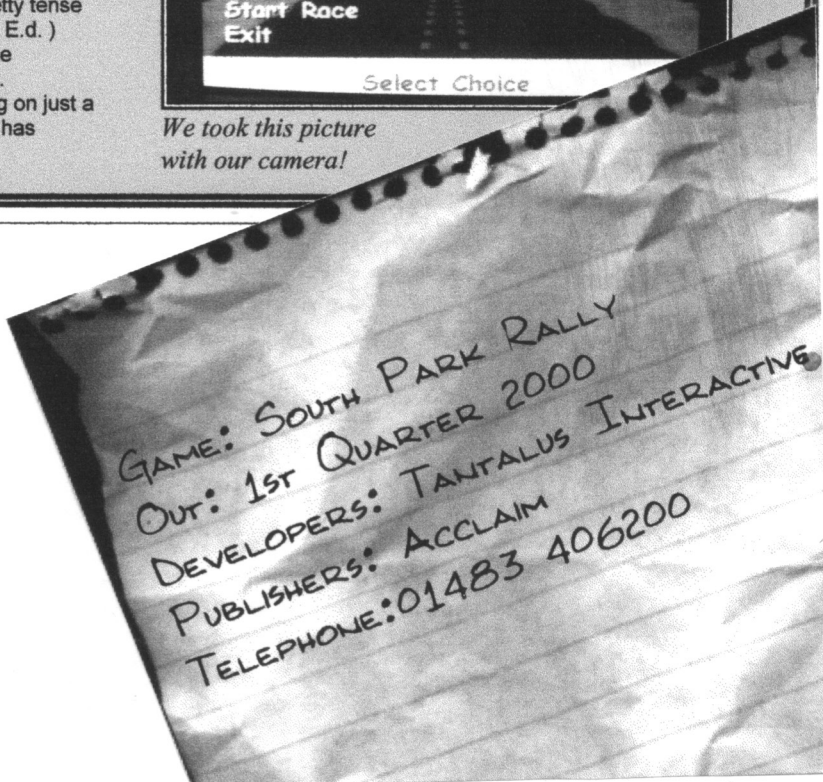 tty tense
E.d. )
e
.
g on just a
has
Start Race
Exit
Select Choice
We took this picture
with our camera!
Game: South Park Rally
Out: 1st Quarter 2000
Developers: Tantalus Interactive
Publishers: Acclaim
Telephone:01483 406200